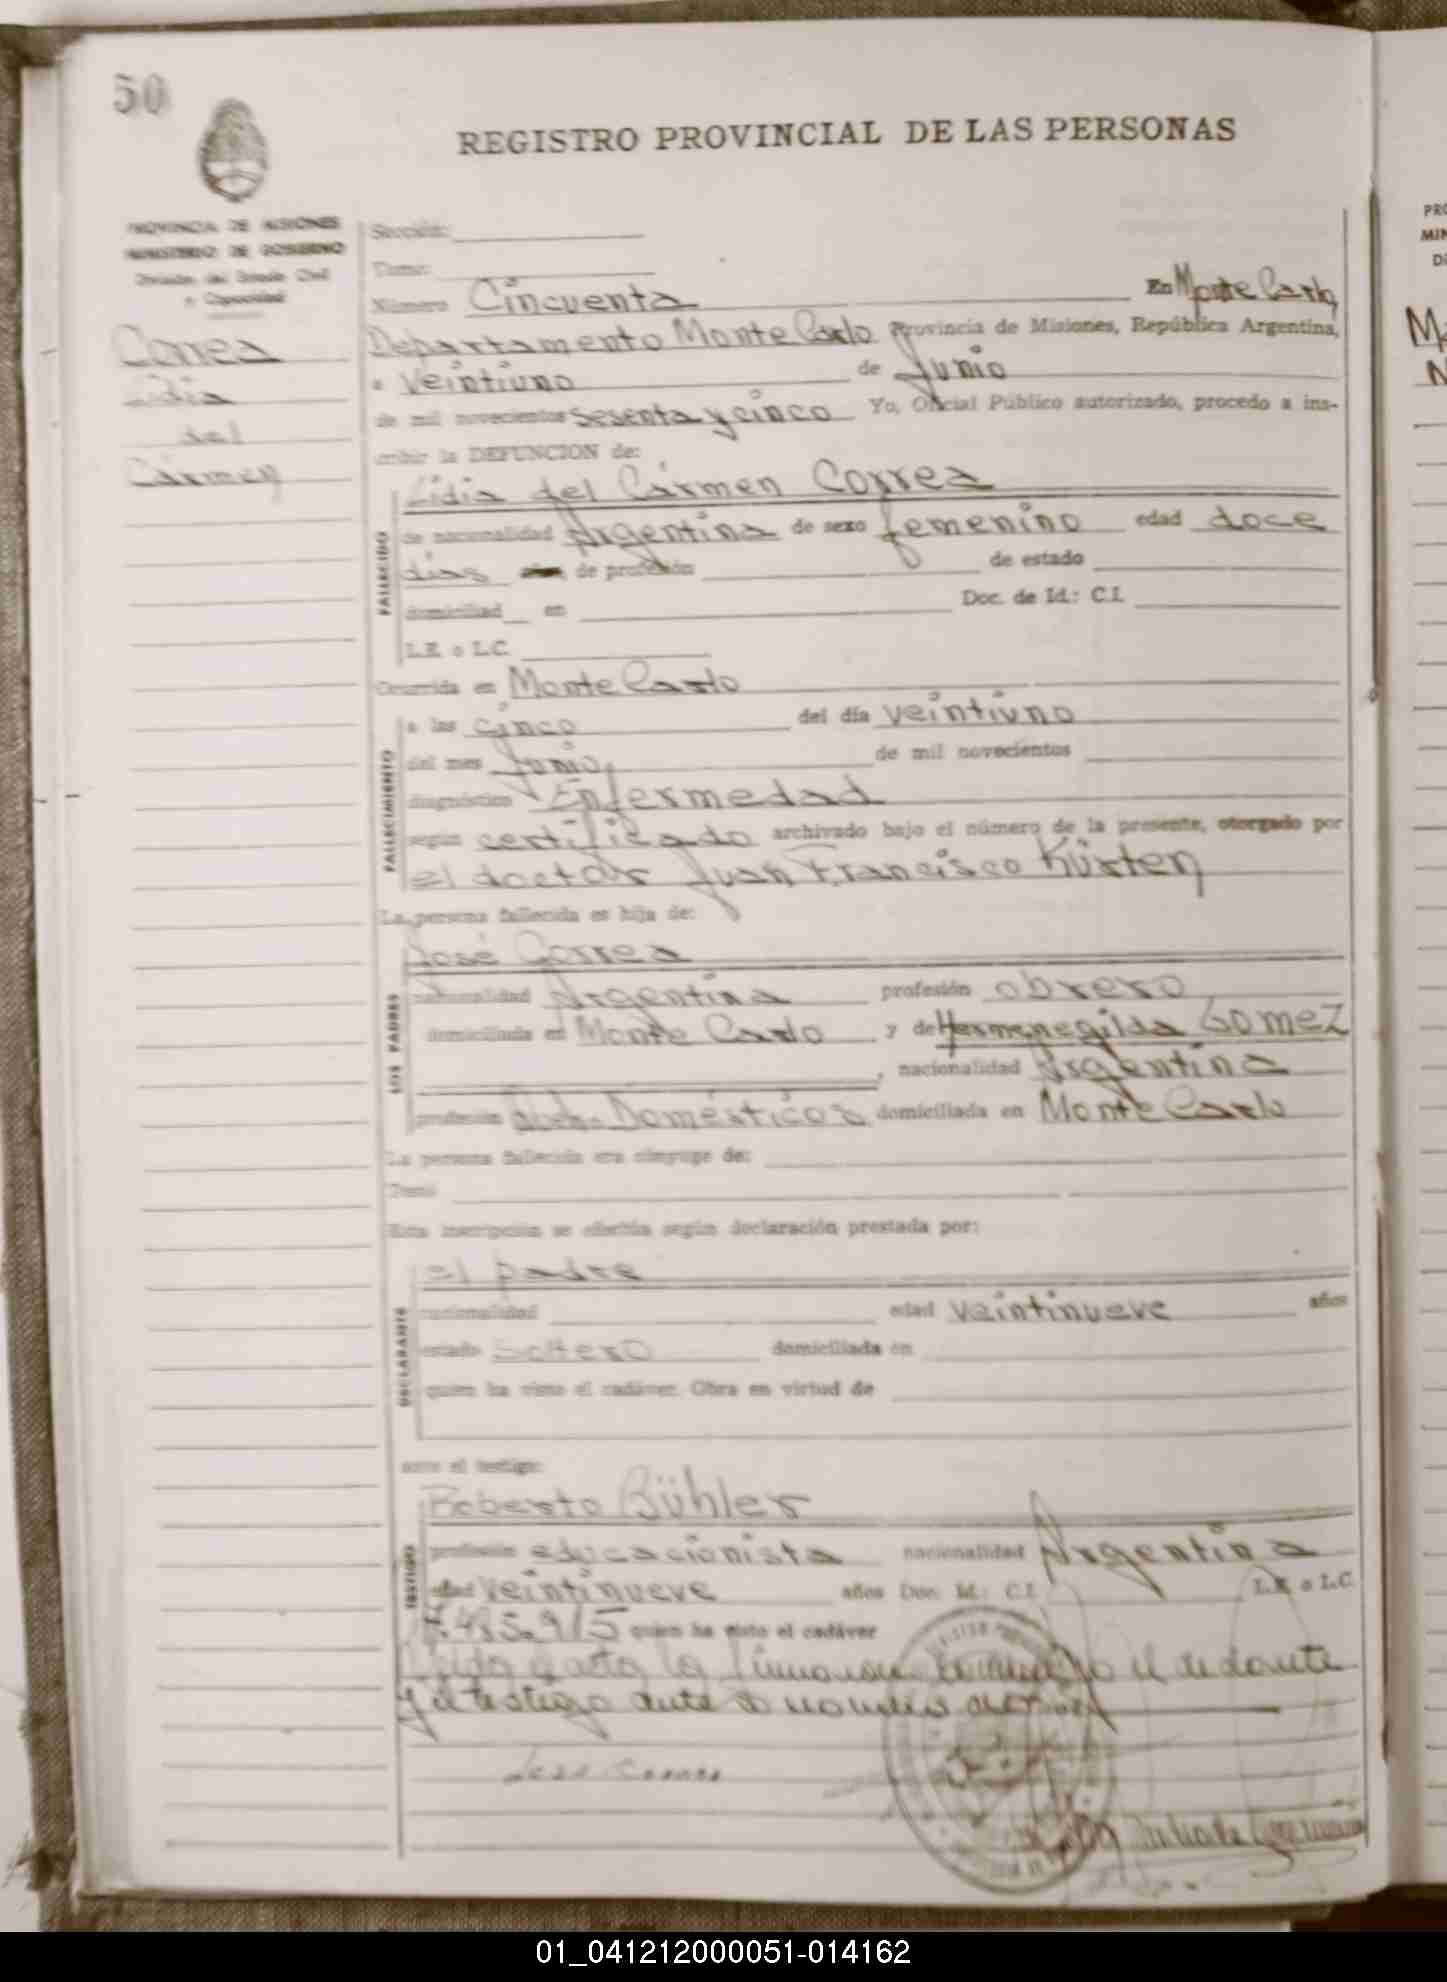 50
REGISTRO PROVINCIAL DE LAS PERSONAS
PROVINCIA DE MISIONES
MINISTERIO DE GOBIERNO
División del Estado Civil
y Capacidad
Correa
Lidia
del
Cármen
Sección:
Tomo:
Número Cincuenta En Monte Carlo
Departamento Monte Carlo Provincia de Misiones, República Argentina,
a veintiuno de Junio
de mil novecientos sesenta y cinco Yo, Oficial Público autorizado, procedo a ins-
cribir la DEFUNCION de:
Lidia del Cármen Correa
FALLECIDO
de nacionalidad Argentina de sexo femenino edad doce
días de profesión de estado
domiciliad en Doc. de Id.: C.I.
L.E. o L.C.
Ocurrida en Monte Carlo
FALLECIMIENTO
a las cinco del día veintiuno
del mes Junio de mil novecientos
diagnóstico Enfermedad
según certificado archivado bajo el número de la presente, otorgado por
el doctor Juan Francisco Kürten
La persona fallecida es hija de:
José Correa
LOS PADRES
nacionalidad Argentina profesión obrero
domiciliada en Monte Carlo y de Hermenegilda Gomez
, nacionalidad Argentina
profesión Domésticos domiciliada en Monte Carlo
La persona fallecida era cónyuge de:
Testó
Esta inscripción se efectúa según declaración prestada por:
el padre
DECLARANTE
nacionalidad edad veintinueve años
estado soltero domiciliada en
quien ha visto el cadáver. Obra en virtud de
ante el testigo:
Roberto Bühler
TESTIGO
profesión educacionista nacionalidad Argentina
edad veintinueve años Doc. Id.: C.I. L.E. o L.C.
7.485.915 quien ha visto el cadáver
Leida el acta la
y el testigo ante
José Correa
PRO
MIN
01_041212000051-014162